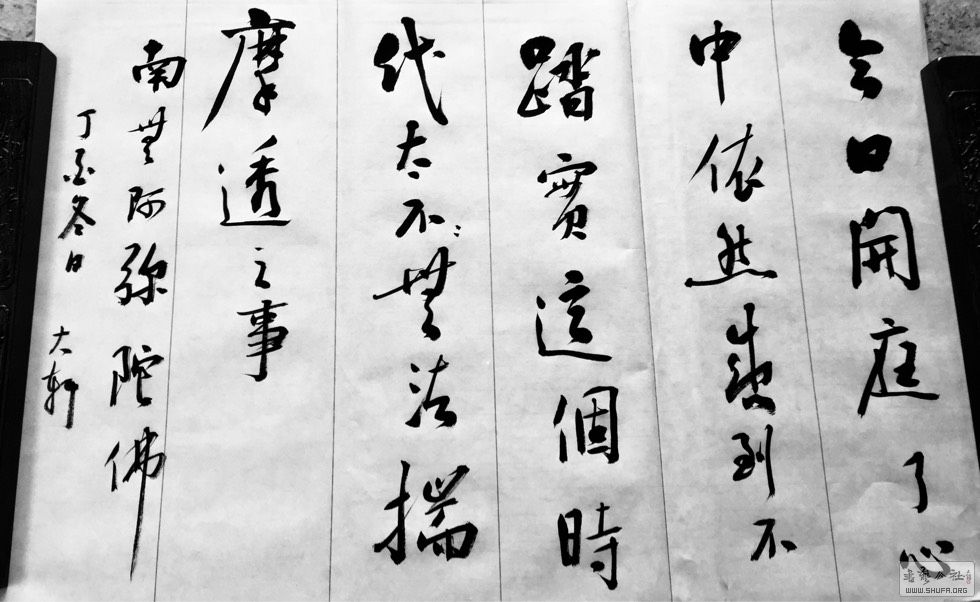 今日開庭了心
中依然感到不
踏實這個時
代太不無法揣
摩透之事
南無阿弥陀佛
丁酉冬日 大軒
書藝公社
WWW.SHUFA.ORG